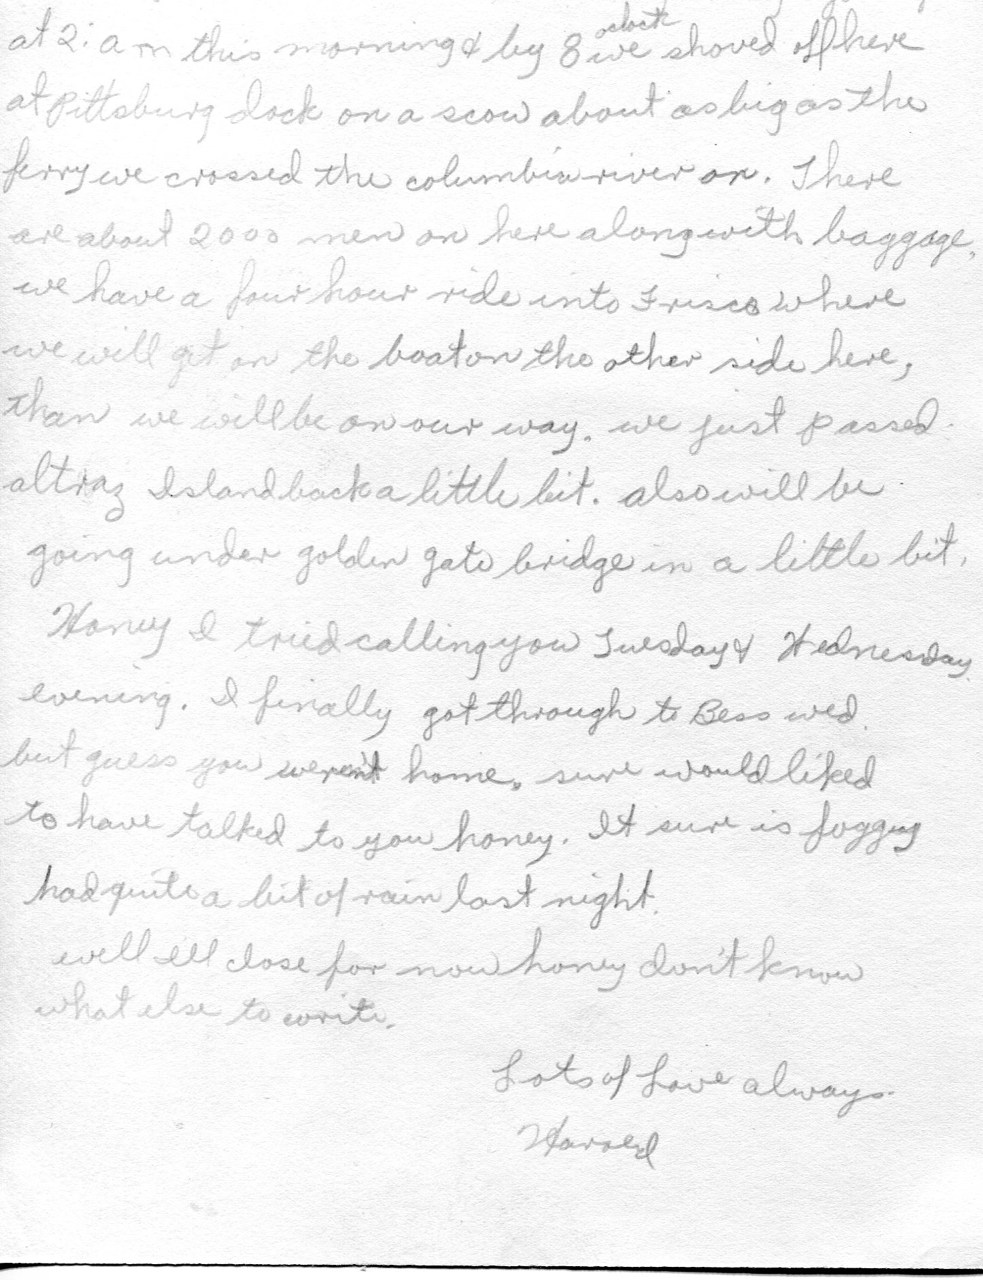 at 2: a m this morning & by 8 oclock we shoved off here
at Pittsburg dock on a scow about as big as the
ferry we crossed the columbia river on. There
are about 2000 men on here along with baggage,
we have a four hour ride into Frisco where
we will get on the boat on the other side here,
than we will be on our way. we just passed
altraz Island back a little bit. also will be
going under golden gate bridge in a little bit.
Honey I tried calling you Tuesday & Wednesday
evening. I finally got through to Bess wed.
but guess you weren't home. sure would liked
to have talked to you honey. It sure is foggy
had quite a bit of rain last night.
well Ill close for now honey don't know
what else to write.
Lots of Love always
Harold